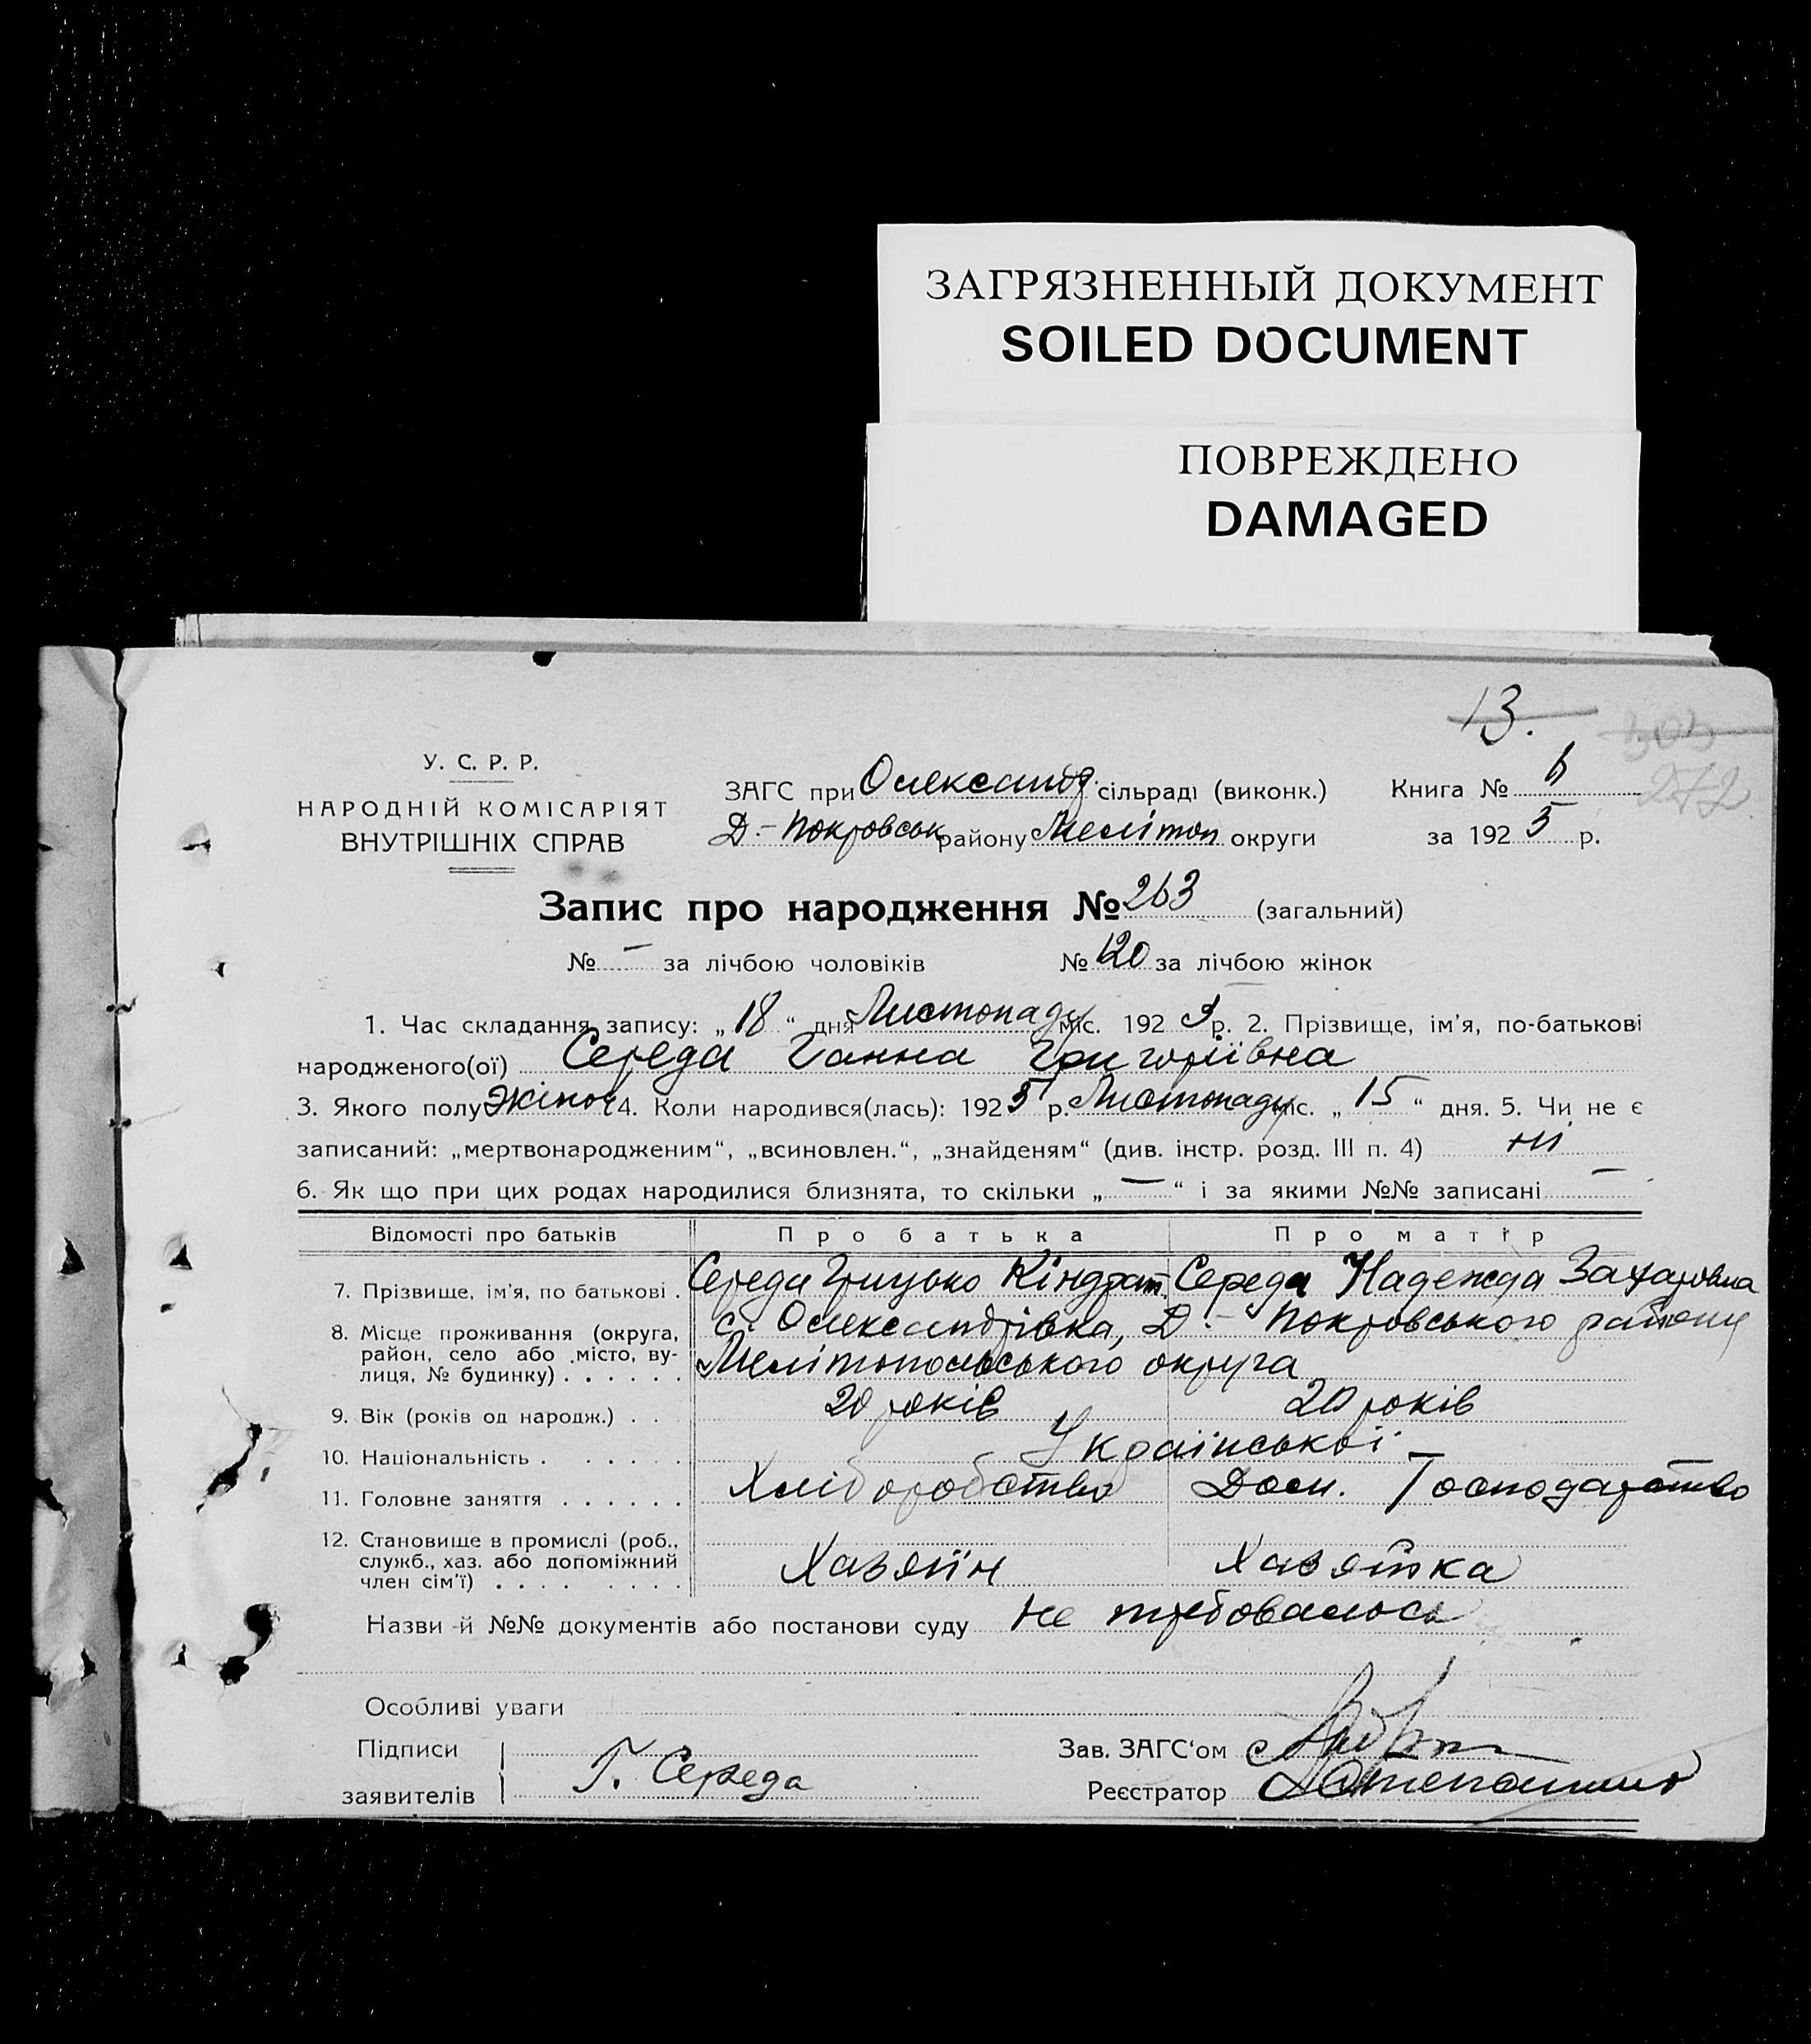 ЗАГРЯЗНЕННЫЙ ДОКУМЕНТ
SOILED DOCUMENT
ПОВРЕЖДЕНО
DAMAGED
13.
303
272
У. С. Р. Р.
НАРОДНІЙ КОМІСАРІЯТ
ВНУТРІШНІХ СПРАВ
ЗАГС при Олександр. сільраді (виконк.)
Д.-Покровськ району Мелітоп округи
Книга № 6
за 1925 р.
Запис про народження № 263 (загальний)
№ — за лічбою чоловіків № 120 за лічбою жінок
1. Час складання запису: „18“ дня Листопаду міс. 1925 р. 2. Прізвище, ім'я, по-батькові
народженого(ої) Середа Ганна Григоріївна
3. Якого полу жіноч 4. Коли народився(лась): 1925 р. Листопаду міс. „15“ дня. 5. Чи не є
записаний: „мертвонародженим“, „всиновлен.“, „знайденям“ (див. інстр. розд. III п. 4) ні
6. Як що при цих родах народилися близнята, то скільки „—“ і за якими №№ записані —
Відомості про батьків Про батька Про матір
7. Прізвище, ім'я, по батькові . Середа Грицько Кіндрат. Середа Надежда Захаровна
8. Місце проживання (округа, район, село або місто, вулиця, № будинку) . . . . . . с. Олександрівка, Д.- Покровського району
Мелітопольського округа
9. Вік (років од народж.) . . 20 років 20 років
10. Національність . . . . . . Української
11. Головне заняття . . . . . . Хліборобство Дом. Господарство
12. Становище в промислі (роб., служб., хаз. або допоміжний член сім'ї) . . . . . . . . Хазяїн Хазяїка
Назви й №№ документів або постанови суду не требовалось
Особливі уваги
Підписи
заявителів Г. Середа
Зав. ЗАГС'ом
Реєстратор